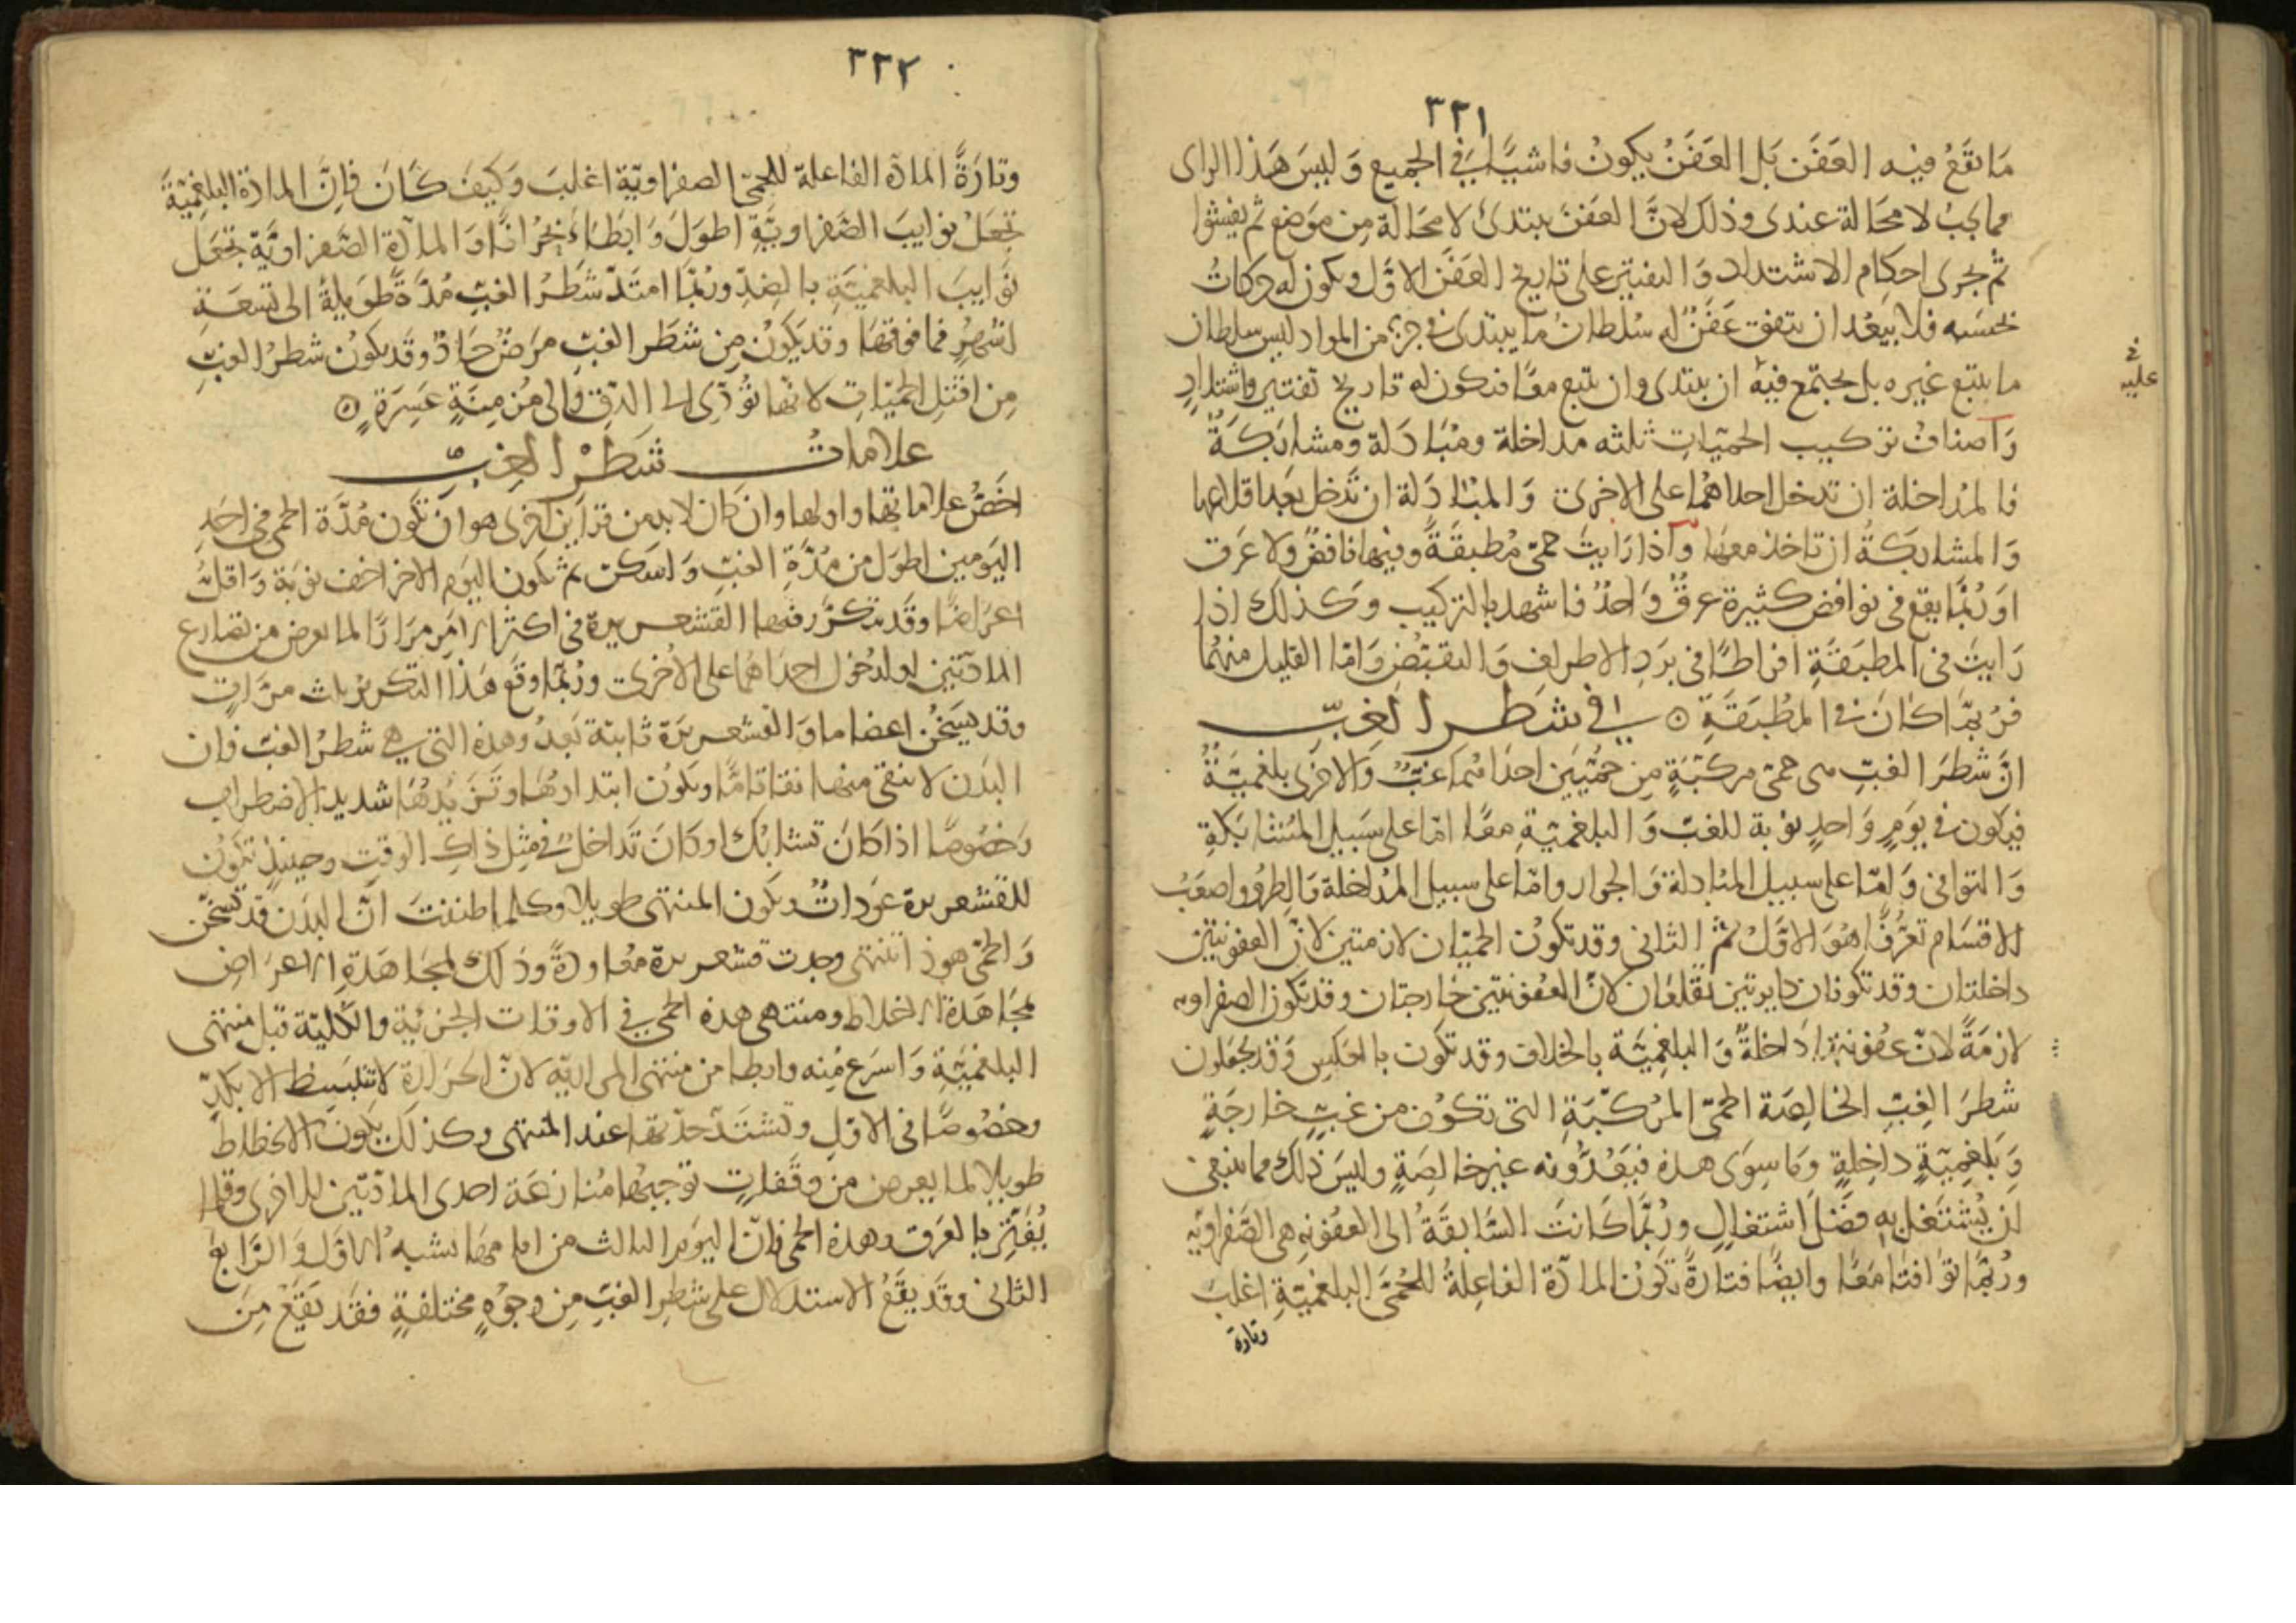 ٣٣١
مَا يقَعُ فيه العَفَن بَل العَفَنُ يكونُ فاشيًا في الجميع وَليسَ هَذا الراى
مما يجبُ لا محَالة عندى وذلك لانَّ العفنَ يبتدئ لا محَالة مِن مَوضع ثم يفشوا
ثم تجرى احكام الاشتداد وَالتفتير على تاريخ العَفَن الاوَّل ويكون له حركاتُ
بحسَبه فلا يبعُد ان يتفق عَفَنٌ له سُلطانُ ما يبتدى في جزءٍ من المواد ليس سلطان
ما يتبع غيره بل يجتمع فيهِ ان يبتدى وان يتبع معًا فتكون له تاريخ تفتير واشتدادٍ
في
عليه
وَاصنافُ تركيب الحمّياتِ ثلثه مداخلة ومُبَادَلة ومشابَكَةٌ
فالمُداخلة ان تدخل احداهُما على الاخرى وَالمبَادَلة ان تَدخل بعَد اقلاعها
وَالمشابكَةُ ان تاخذ معهَا وَاذا رَايتَ حمّى مُطبقَةً وفيها نافضٌ ولا عَرق
اوَ رُبَّما يقع في نوافض كثيرة عرقٌ وَاحدٌ فاشهد بالتركيب وَكذلك اذا
رَايتَ في المطبَقَةِ افراطًا في بَردِ الاطراف وَالتقبّضِ وَامّا القليل منهُما
فرُبمَّا كانَ في المطُبَقَةِ ۞ في شَطر الغِبّ
انَّ شَطرَ الغبّ هى حمّى مركبّةٍ مِن حمُيّيَن احدَاهُمَا غبٌّ وَالاخرَى بلغميّةٌ
فيكون في يَومٍ وَاحدٍ نوبة للغبّ وَالبلغميّةِ معًا امّا على سَبيل المُتشابَكةِ
وَالتوافى وَامّا على سبيل المُبادلة وَالجوار وامّا على سبيل المدُاخلة وَالطروّ واصعَبُ
الاقسَام تعرُّفًا هُوَ الاوَّلُ ثم الثانى وقد تكونُ الحميّان لازمتين لانّ العفونتين
داخلتان وقد تكونان دايرتين تقلعَان لانَّ العفونتين خارجتان وقد تكون الصفراويه
لازمَةً لانّ عفونتهَا دَاخلةٌ وَالبلغميّة بالخلاف وقد تكون بالعكس وَقد يجعَلون
شَطرَ الغِبّ الخالِصَة الحمّى المرُكبّةِ التى تكوُن من غبّ خارجَةٍ
وَبَلغمِيّةٍ داخِلةٍ وَمَا سِوَى هذه فيَعُدُّونه غير خالصَةٍ وليسَ ذلك مما ينبغى
ان يُشتَغل بهِ فضَلَ اشتغالٍ ورُبَّما كَانتَ السَّابقَةُ الى العفُونهِ هى الصَّفراويّه
ورُبمَّا توَافتَا مَعًا وايضًا فتارةً تكونُ المادّة الفاعِلةُ للحُمَّى البلغميّةِ اغلبَ
وتارة
٣٣٢
وتارَةً المادّه الفاعلة للحمىّ الصفراويّة اغلبَ وَكيفَ كَانَ فاِنَّ المادّة البلغميّةَ
تجعَلُ نوايبَ الصَّفراويّةِ اطوَلَ وَابطَاءَ بُحرُانًا وَالمادّة الصَّفراويَّة تجعَل
نوَايبَ البلغميّةِ بالضِدّ ورُبّمَا امتَدّ شَطرُ الغبّ مُدَّةً طوَيلةً الى تسعَةِ
اشهُرٍ فما فوقهَا وقد يَكونُ مِن شطَر الغبّ مرَضٌ حَادٌّ وقَد يكونُ شطرُ الغبّ
مِن اقتَلِ الحمّيّاتِ لانّها تؤدّى الى الدقّ والى مُزمِنَةٍ عَسِرَةٍ ۞
علامات شَطرْ الغِبّ
اخَصُّ علاماتها واولها وان كان لا بد من قرَاين اخرى هو ان تَكون مُدّة الحمى في احَدِ
اليَومين اطوَل من مُدَّةِ الغبّ وَاسَكن ثم تكون اليَوم الاخر اخف نوبَة وَاقلّ
اعرَاضًا وقَد تتكرَّر فيهَا القشعريرة في اكثر الامرِ مِرَارًا لما يعرض من تصَارع
المادّتين او لدخُول احدَاهُما على الاُخرى ورُبّما وقَع هَذا التكرير ثلاث مرَّاتٍ
وقد يسَخُن اعضا ما وَالقشعريرَة ثابتة بَعدُ وهذه التى هى شَطرُ الغبّ فان
البَدن لا ينقى منها نقا تامًّا ويكون ابتداؤهَا وتَزيُّدهَا شديد الاضطراب
وَخصُوصًا اذا كَان تشابُك او كَانَ تَداخل في مثِل ذاكِ الوقتِ وحينيذٍ تكوُن
للقشعريرة عَوداتٌ ويكون المنتهى طويلا وكلما ظننتَ انَّ البدَن قد تسَخّن
وَالحمّى هو ذا تنتهى وجدت قشعريرة معُاوِدةً وذلك لمجَاهَدةِ الاعرَاض
لمجَاهَدة الاخلاط ومنتهى هذه الحمى في الاوقات الجزئية والكليّة قبل منتهى
البلغميَّةِ وَاسرَع مِنه وابطا من منتهى المراريّه لانَّ الحرَارة لا تنبَسِط الا بكدٍّ
وخصُوصًا في الاوّلِ وتشتَدّ حدّتها عند المنتهى وكذلك يكونُ الانحطاط
طويلا لما يعرض من وقفاتٍ توجبُها مُنازعَة احدى المادّتين للاخرى وقلّما
يُفَتّر بالعَرق وهذه الحمى فانّ اليَوم الثالث من ايامهَا يشبهُ الاوَّل وَالرَّابع
الثانى وقَد يقَعُ الاستدلال على شَطرِ الغبّ مِن وجوُهٍ مختلفةٍ فقَد يَقعُ مِنَ